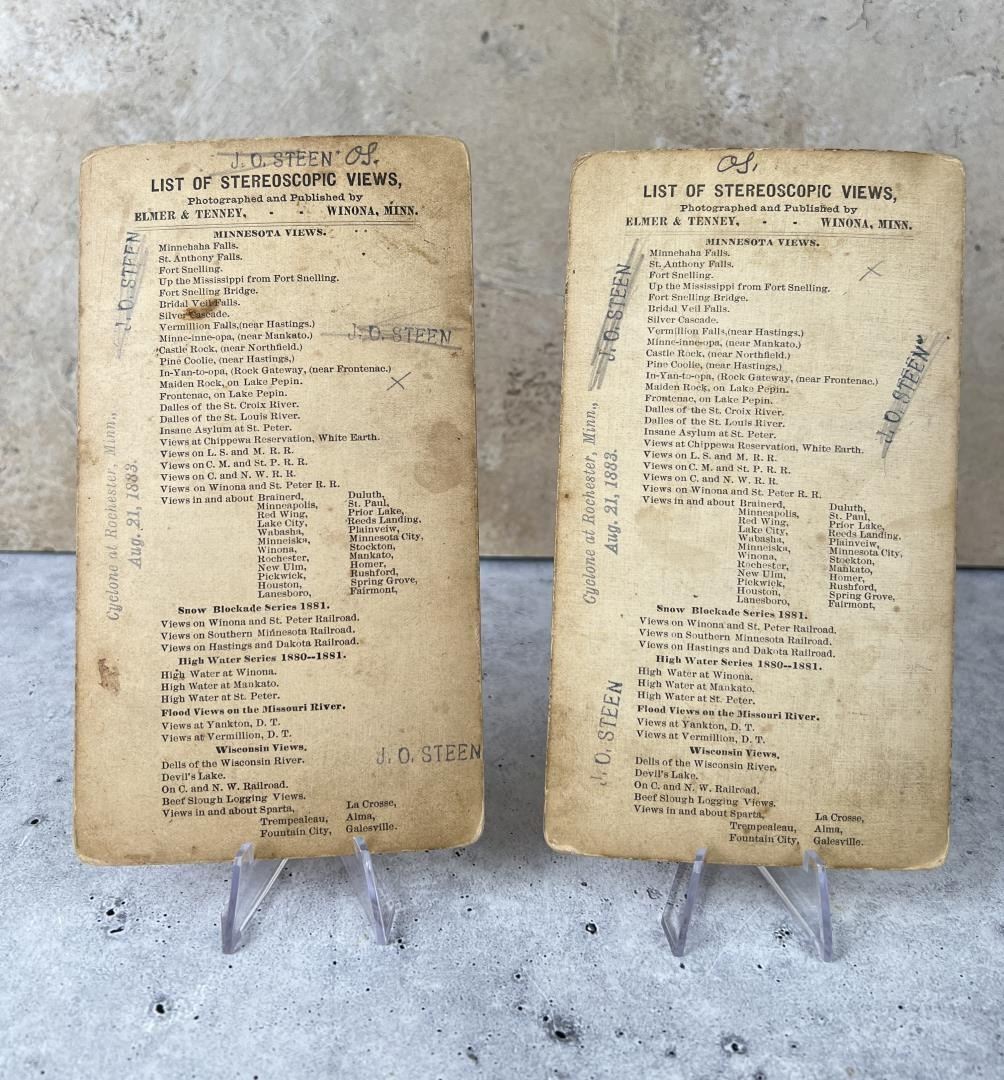 J. O. STEEN OS.
LIST OF STEREOSCOPIC VIEWS,
Photographed and Published by
ELMER & TENNEY, - - WINONA, MINN.
MINNESOTA VIEWS.
Minnehaha Falls.
St. Anthony Falls.
Fort Snelling.
Up the Mississippi from Fort Snelling.
Fort Snelling Bridge.
Bridal Veil Falls.
Silver Cascade.
Vermillion Falls,(near Hastings.)
Minne-inne-opa, (near Mankato.)
Castle Rock, (near Northfield.)
Pine Coolie, (near Hastings,)
In-Yan-to-opa, (Rock Gateway, (near Frontenac.)
Maiden Rock, on Lake Pepin.
Frontenac, on Lake Pepin.
Dalles of the St. Croix River.
Dalles of the St. Louis River.
Insane Asylum at St. Peter.
Views at Chippewa Reservation, White Earth.
Views on L. S. and M. R. R.
Views on C. M. and St. P. R. R.
Views on C. and N. W. R. R.
Views on Winona and St Peter R. R.
Views in and about Brainerd, Duluth,
Minneapolis, St. Paul,
Red Wing, Prior Lake,
Lake City, Reeds Landing,
Wabasha, Plainveiw,
Minneiska, Minnesota City,
Winona, Stockton,
Rochester, Mankato,
New Ulm, Homer,
Pickwick, Rushford,
Houston, Spring Grove,
Lanesboro, Fairmont,
Snow Blockade Series 1881.
Views on Winona and St. Peter Railroad.
Views on Southern Minnesota Railroad.
Views on Hastings and Dakota Railroad.
High Water Series 1880--1881.
High Water at Winona.
High Water at Mankato.
High Water at St. Peter.
Flood Views on the Missouri River.
Views at Yankton, D. T.
Views at Vermillion, D. T.
Wisconsin Views,
Dells of the Wisconsin River.
Devil's Lake.
On C. and N. W. Railroad.
Beef Slough Logging Views.
Views in and about Sparta, La Crosse,
Trempealeau, Alma,
Fountain City, Galesville.
J. O. STEEN
J. O. STEEN
J. O. STEEN
Cyclone at Rochester, Minn.,
Aug. 21, 1883.
OS.
LIST OF STEREOSCOPIC VIEWS,
Photographed and Published by
ELMER & TENNEY, - - WINONA, MINN.
MINNESOTA VIEWS.
Minnehaha Falls.
St. Anthony Falls.
Fort Snelling.
Up the Mississippi from Fort Snelling.
Fort Snelling Bridge.
Bridal Veil Falls.
Silver Cascade.
Vermillion Falls,(near Hastings.)
Minne-inne-opa, (near Mankato.)
Castle Rock, (near Northfield.)
Pine Coolie, (near Hastings,)
In-Yan-to-opa, (Rock Gateway, (near Frontenac.)
Maiden Rock, on Lake Pepin.
Frontenac, on Lake Pepin.
Dalles of the St. Croix River.
Dalles of the St. Louis River.
Insane Asylum at St. Peter.
Views at Chippewa Reservation, White Earth.
Views on L. S. and M. R. R.
Views on C. M. and St. P. R. R.
Views on C. and N. W. R. R.
Views on Winona and St Peter R. R.
Views in and about Brainerd, Duluth,
Minneapolis, St. Paul,
Red Wing, Prior Lake,
Lake City, Reeds Landing,
Wabasha, Plainveiw,
Minneiska, Minnesota City,
Winona, Stockton,
Rochester, Mankato,
New Ulm, Homer,
Pickwick, Rushford,
Houston, Spring Grove,
Lanesboro, Fairmont,
Snow Blockade Series 1881.
Views on Winona and St. Peter Railroad.
Views on Southern Minnesota Railroad.
Views on Hastings and Dakota Railroad.
High Water Series 1880--1881.
High Water at Winona.
High Water at Mankato,
High Water at St. Peter.
Flood Views on the Missouri River.
Views at Yankton, D. T.
Views at Vermillion, D. T.
Wisconsin Views,
Dells of the Wisconsin River,
Devil's Lake.
On C. and N. W. Railroad.
Beef Slough Logging Views.
Views in and about Sparta, La Crosse,
Trempealeau, Alma,
Fountain City, Galesville.
J. O. STEEN
J. O. STEEN
J. O. STEEN
Cyclone at Rochester, Minn.,
Aug. 21, 1883.